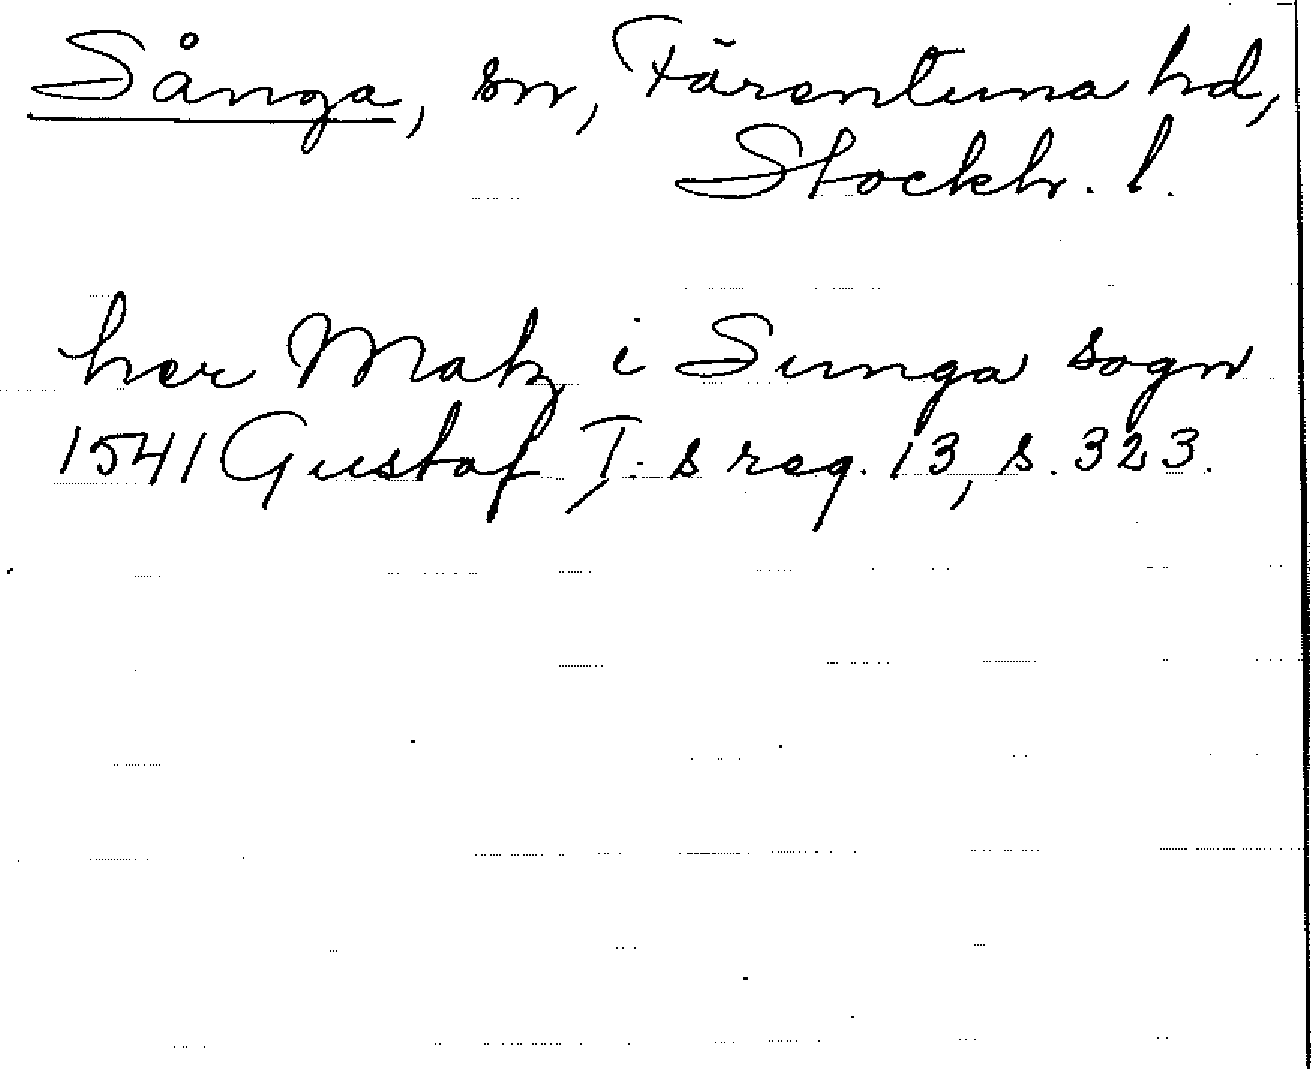 Sånga, sn, Färentuna hd,
Stockh. l.
her Matz i Sunga sogn
1541 Gustaf I:s reg. 13, s. 323.